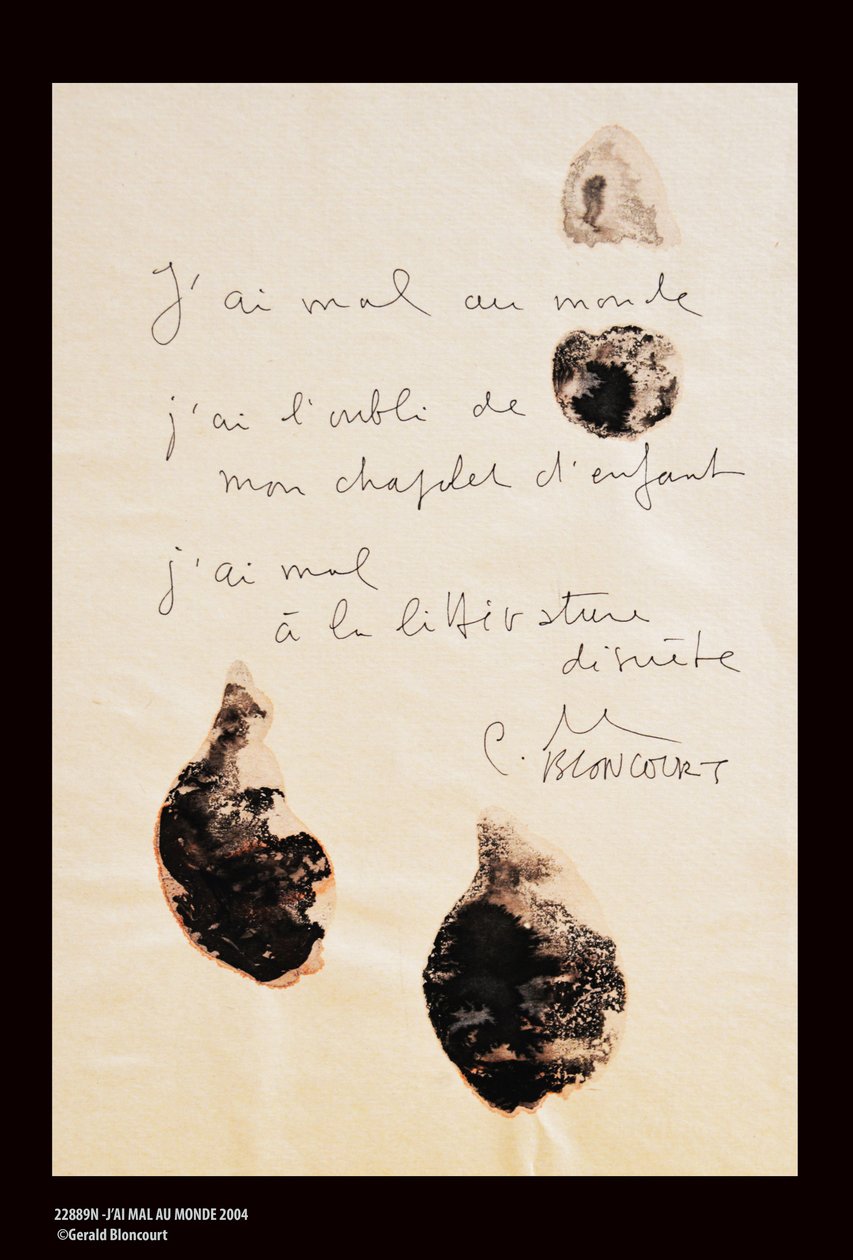 J'ai mal au monde
j'ai l'oubli de
mon chapelet d'enfant
j'ai mal
à la littérature
discrète
BLONCOURT
22889N -J'AI MAL AU MONDE 2004
©Gerald Bloncourt